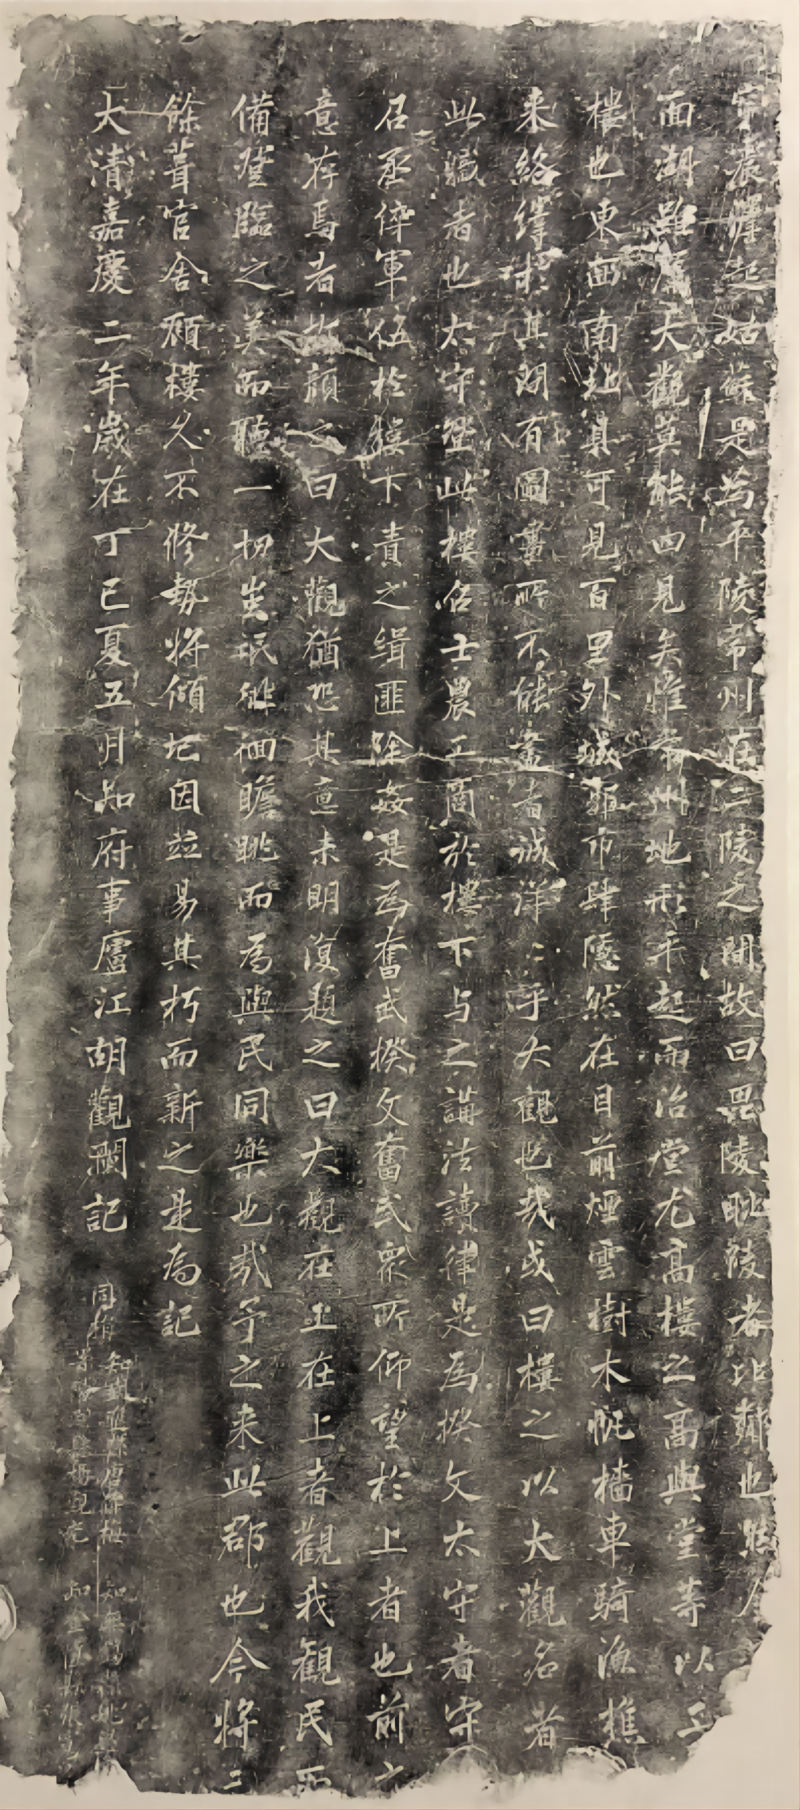 寧濃墀起姑蘇是為平陵常州在二陵之間故曰毘陵毗陵者比鄰也
面湖雖屬大觀莫能四見矣惟常州地形平起而治堂尤高樓之高與堂等以
樓也東西南北具可見百里外城郭市肆隱然在目前煙雲樹木帆檣車騎漁樵
来絡繹於其間有圖畫所不能盡者誠洋〻乎大觀也哉或曰樓之以大觀名者
此職者也太守登此樓召士農工商於樓下与之講法讀律是為揆文太守者守
召丞倅軍伍於樓下責之緝匪除姦是為奮武揆文奮武衆所仰望於上者也前
意存焉者此顏之曰大觀猶恐其意未明復題之曰大觀在上在上者觀我觀民而
備登臨之美而聽一切蚩氓徘徊瞻眺而為與民同樂也哉予之来此郡也今將三
餘葺官舍顧樓久不修勢將傾圮因並易其朽而新之是為記
大清嘉慶二年歲在丁巳夏五月知府事廬江胡觀瀾記